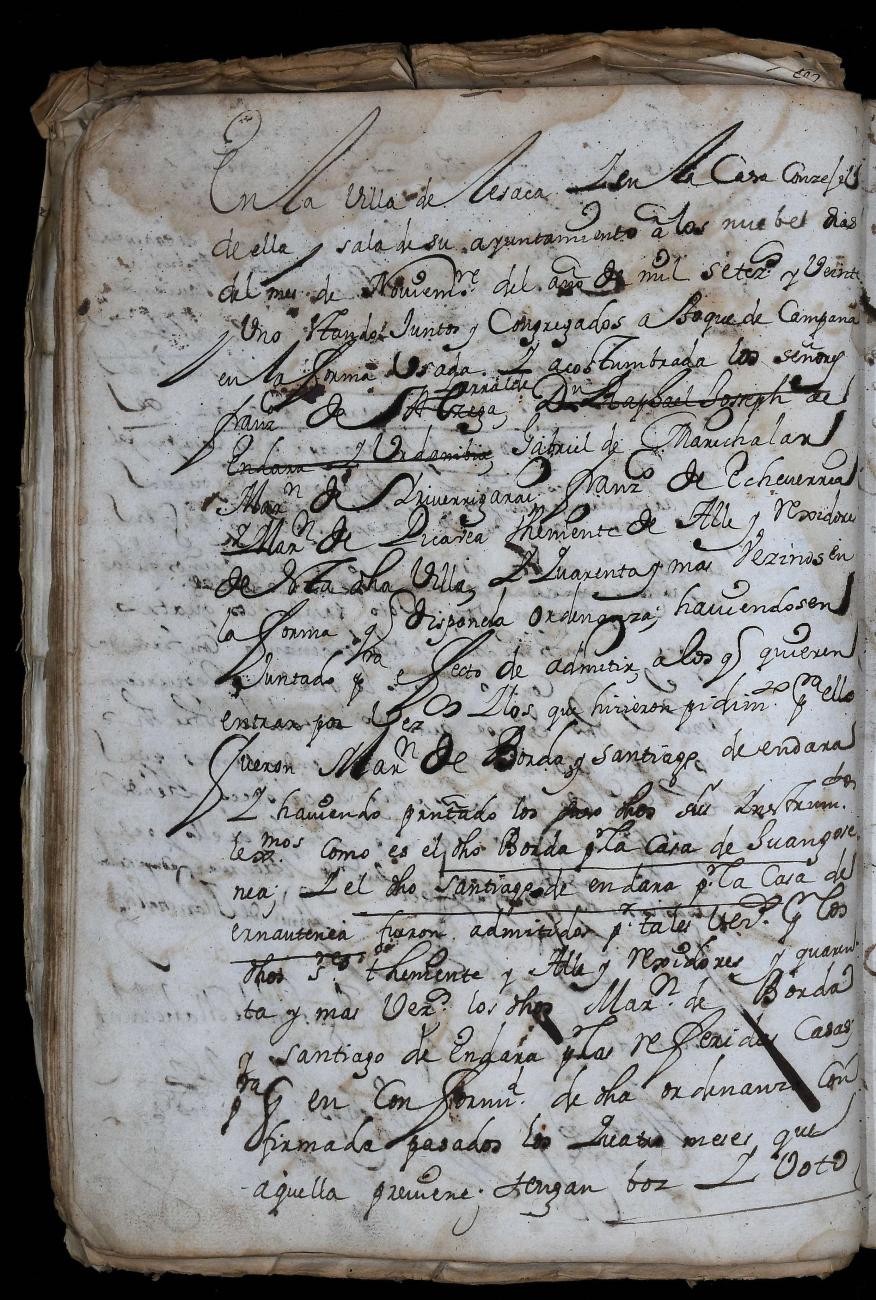 En la Villa de lesaca Y en la Casa Conzejil
de ella y sala de su ayuntamiento a los nuebe dias
del mes de Nouiem.re del año de mil setez.s y Veinte
y Uno stando Juntos y Congregados a Boque de Campana
en la forma Usada Y acostumbrada los señores
franz.co de Larralde D.n Raphael Joseph de
Endara Y Urdanibia, Gabriel de Marichalar
Mar.n de franz.co de Echeuerria
Y Mar.n de Picauea theniente de Alle y rexidores
de esta dha Villa, Y Quarenta y mas Vezinos en
la forma q dispone la ordenanza; hauiendosen
Juntado p.ra efecto de admitir a los q quieren
entrar por Vez.os Y los que hizieron pidim.to p.ra ello
fueron Mar.n de Borda y santiago de endara
Y hauiendo presentado los dhos sus Ynstrum.tos
lex.mos como es el dho Borda p.r la Casa de Juangose
nea; Y el dho santiago de endara p.r la Casa de
ernautenea fueron admitidos p.r tales Vez.s y los
dhos s.res theniente y Alle y rexidores y quaren
ta y mas Vez.s los dhos Mar.n de Borda
y santiago de Endara p.r las referidas Casas;
p.ra q en Conformi.d de dha ordenanza Con
firmada pasados los quatro meses que
aquella preuiene; tengan boz Y Voto